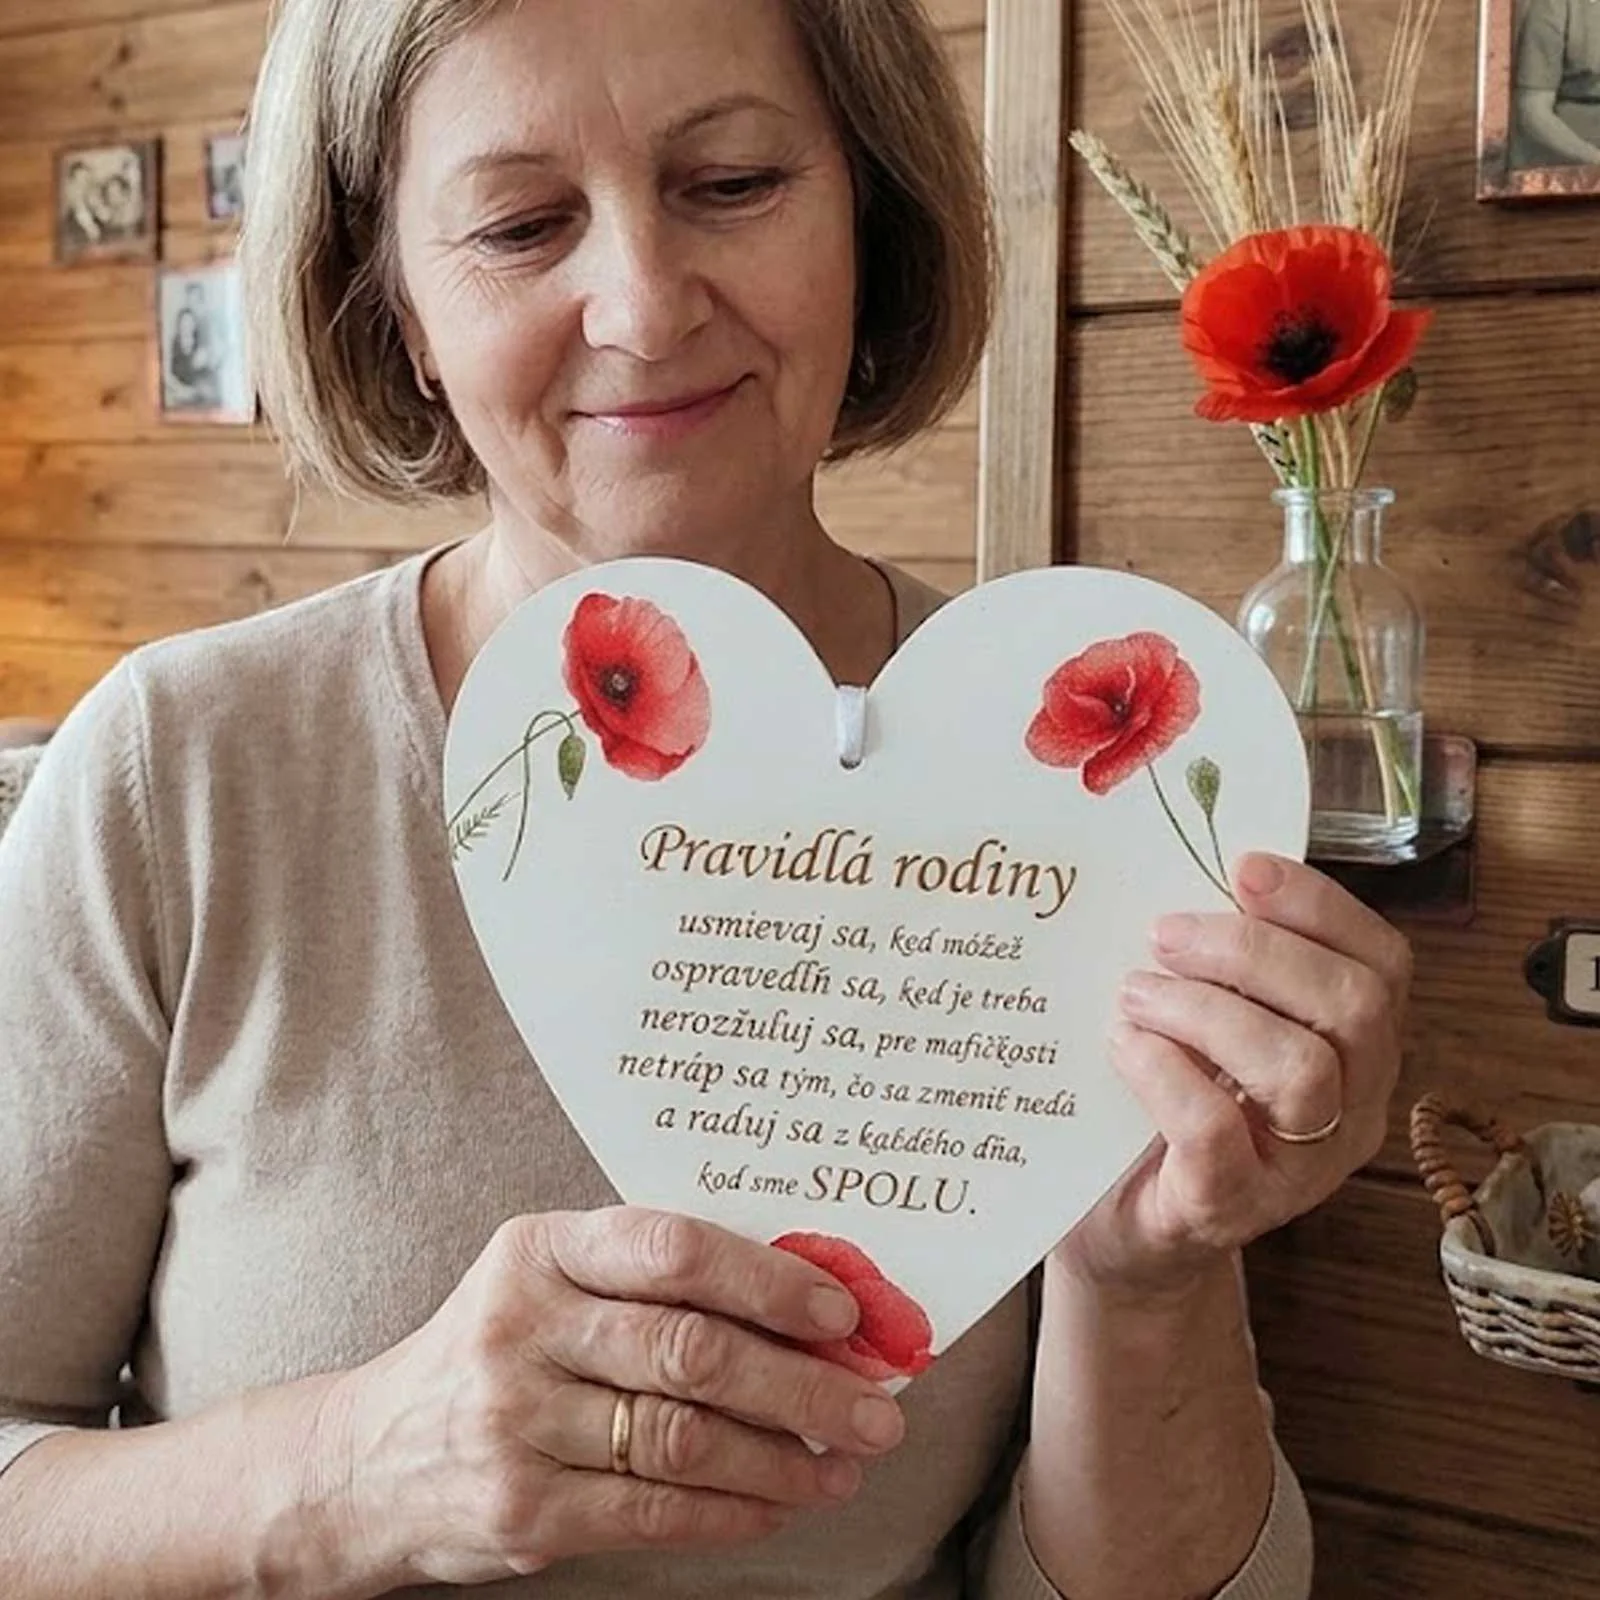 Pravidlá rodiny
usmievaj sa, keď môžeš
ospravedlň sa, keď je treba
nerozžuľuj sa, pre mafičkosti
netráp sa tým, čo sa zmeniť nedá
a raduj sa z každého dňa,
kod sme SPOLU.